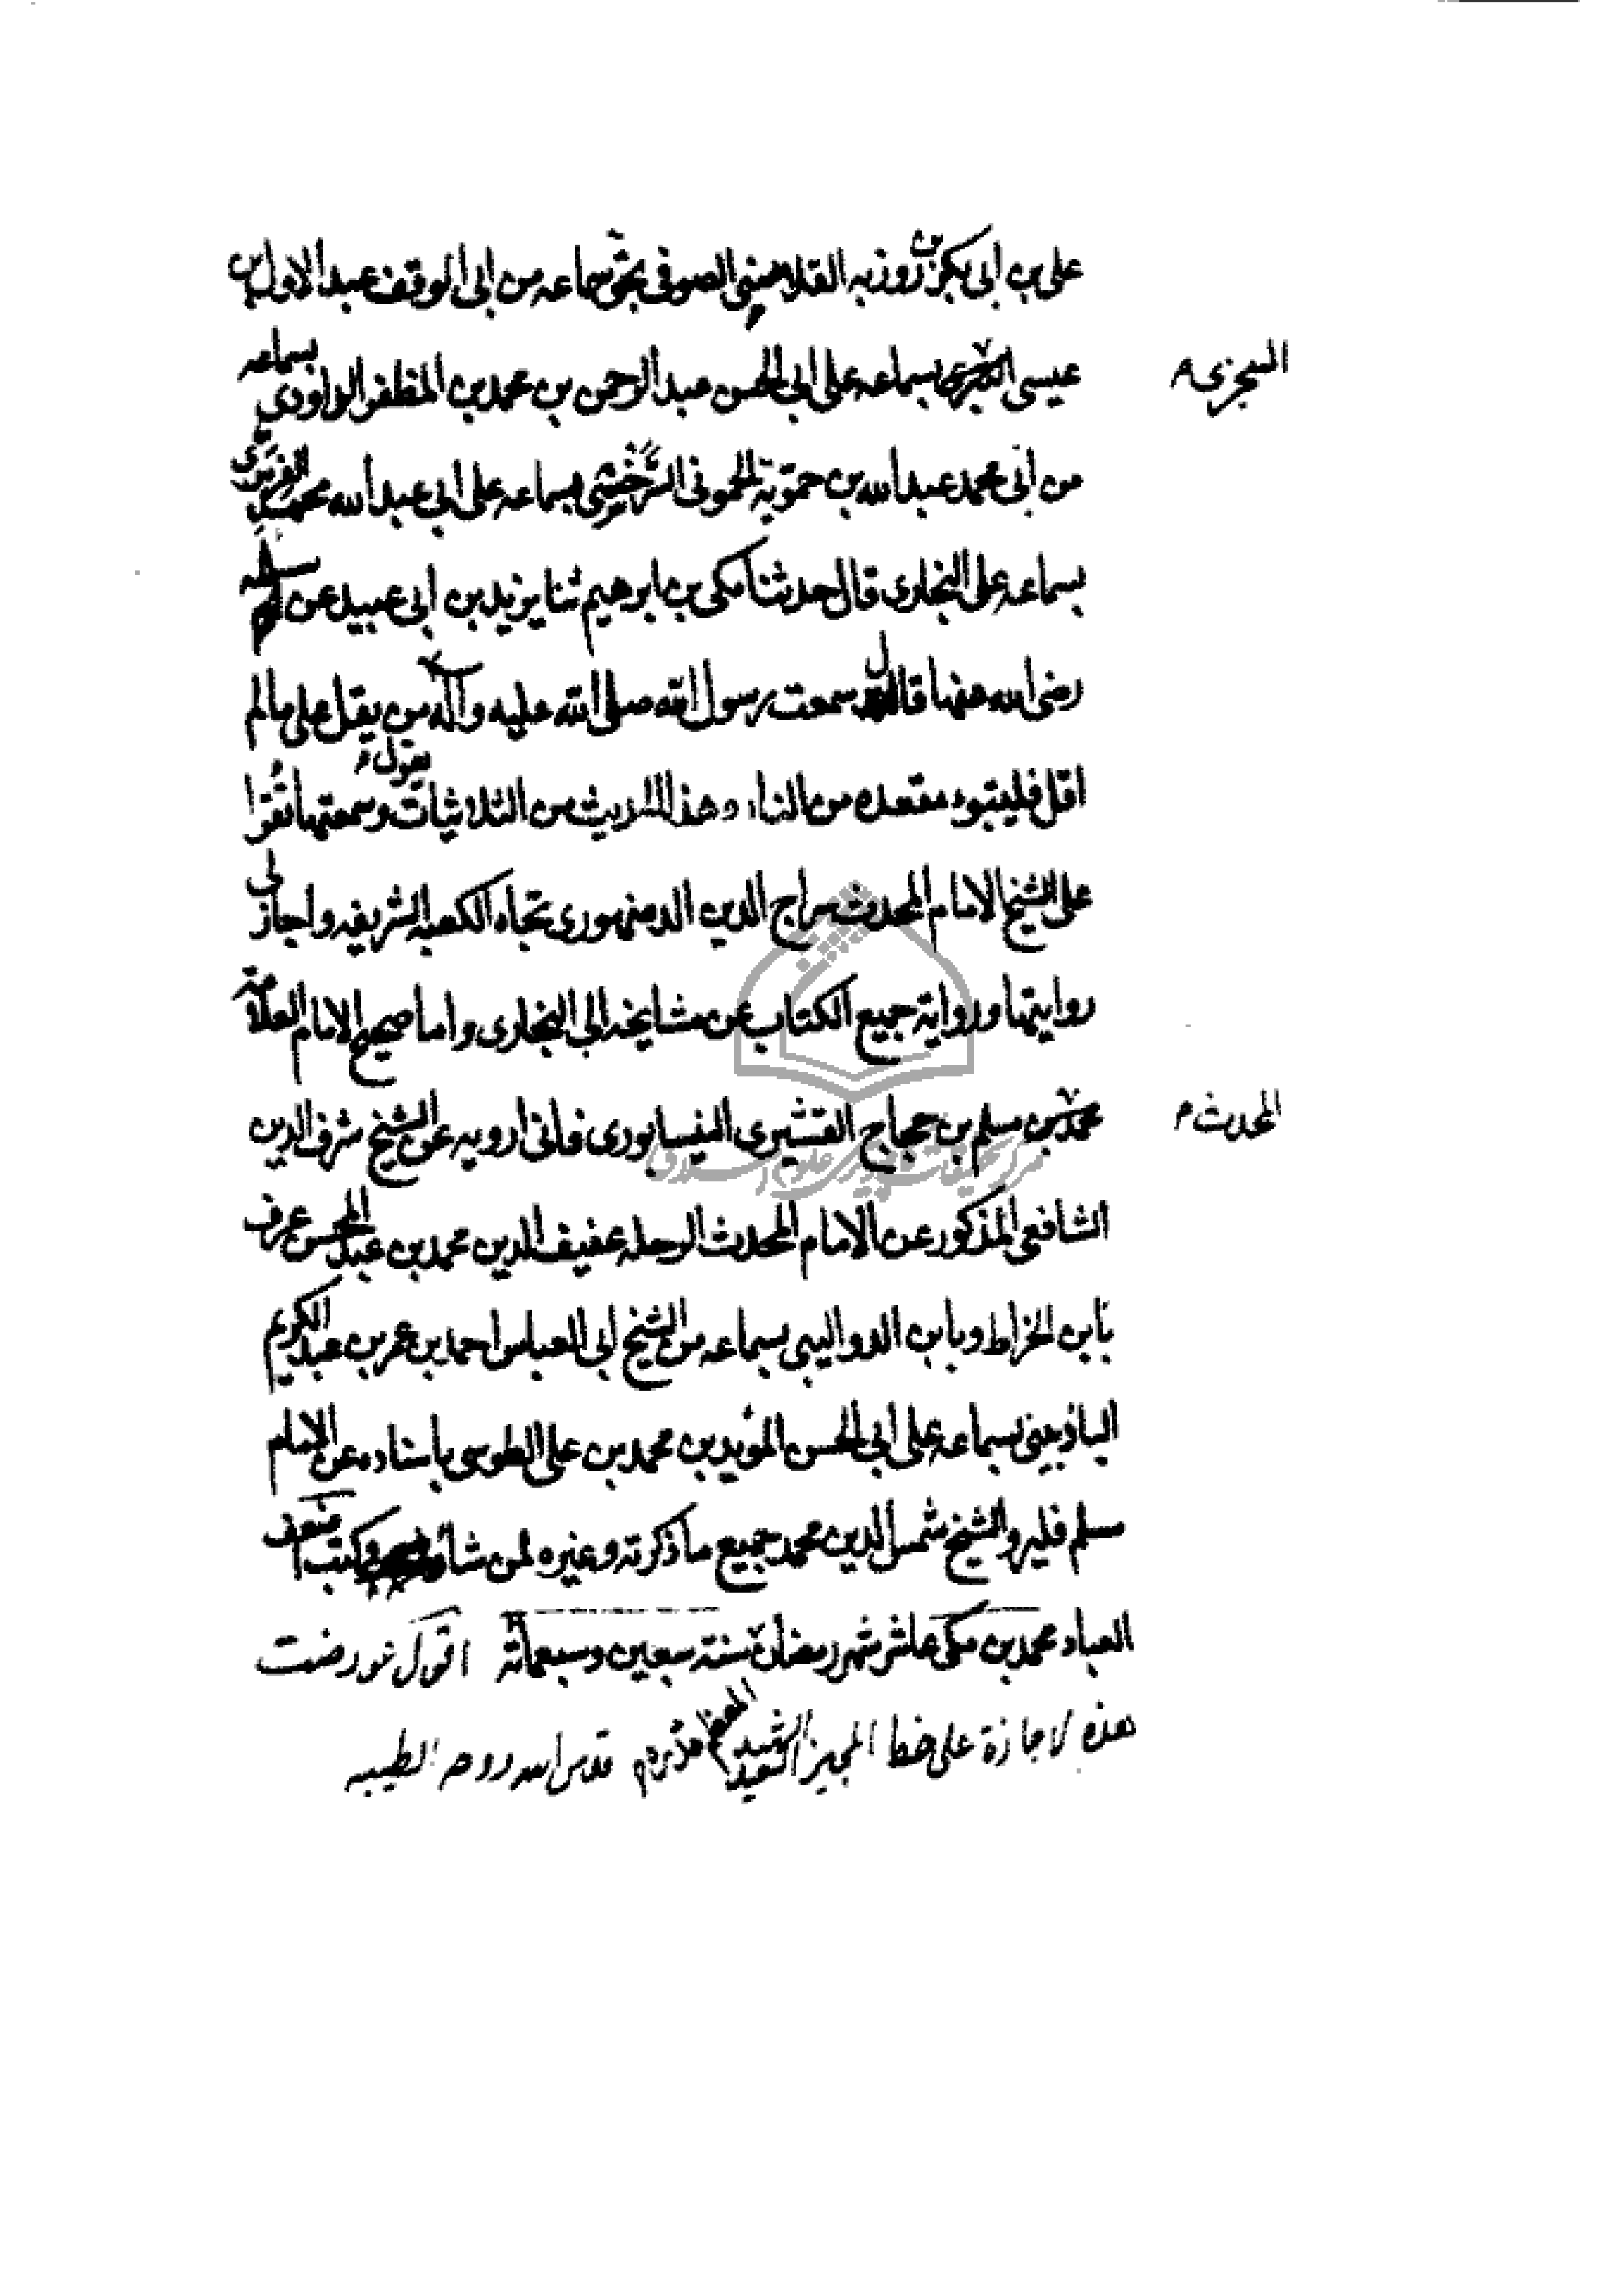 على بن ابى بكر بن روزبه القلانسى الصوفى بحق سماعه من ابى الوقف عبد الاول بن
عيسى السجزى بسماعه على ابى الحسن عبد الرحمن بن محمد بن المظفر الداودى بسماعه
السجزى م
من ابى محمد عبد الله بن حمّويه الحموى السَّرَخْسى بسماعه على ابى عبد الله محمد الفربرى
بسماعه على البخارى قال حدثنا مكى بن ابرهيم ثنا يزيد بن ابى عبيد عن سلمه
رضى الله عنها قال سمعت رسول الله صلى الله عليه وآله من يقل على مالم
يقول م
اقل فليتبوء مقعده من النار وهذا الحديث من الثلاثيات وسمعتها تقرا
على الشيخ الامام المحدث سراج الدين الدمنهورى تجاه الكعبه الشريفه واجاز لى
روايتها ورواية جميع الكتاب عن مشايخه الى البخارى واما صحيح الامام العلامة
محمد بن مسلم بن حجاج القشيرى النيسابورى فانى ارويه عن الشيخ شرف الدين
المحدث م
الشافعى المذكور عن الامام المحدث الرحله عفيف الدين محمد بن عبد المحسن عرف
بابن الخراط وبابن الدواليبى بسماعه من الشيخ ابى العباس احمد بن عمر بن عبد الكريم
الباذبينى بسماعه على ابى الحسن المؤيد بن محمد بن على الطوسى باسناده عن الامام
مسلم فليرو الشيخ شمس الدين محمد جميع ما ذكرته وغيره لمن شاء وكتب اضعف
العباد محمد بن مكى عاشر شهر رمضان سنة سبعين وسبعمائة اقول عورضت
هذه الاجازة على خط المجيز السعيد الشهيد المعظم قدس الله روحه الطيبه